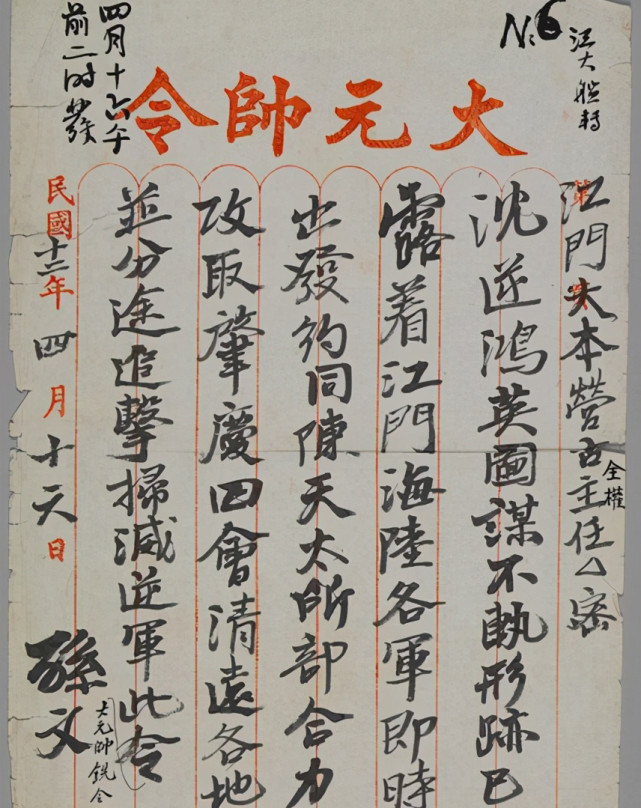 江大艦轉
No 6
大元帥令
四月十六午
前二时發
江門大本營古主任△密
全權
沈逆鴻英圖謀不軌形跡已
露着江門海陸各軍即時
出發約同陳天太所部合力
攻取肇慶四會清遠各地
並分途追擊掃滅逆軍此令
大元帥銑令
民國十二年四月十六日
孫文